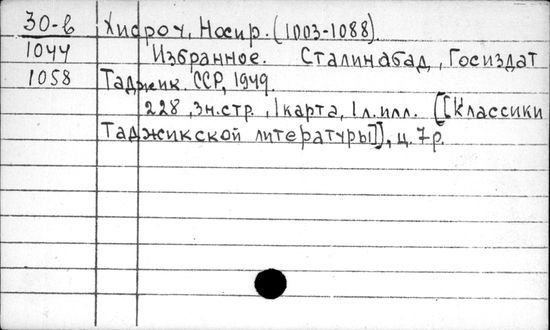 30-в Хисроч, Носир. (1003-1088).
1044 Избранное. Сталинабад, Госиздат
1058 Таджик. ССР, 1949.
228, 3н.стр., 1карта, 1л.илл. [[Классики
Таджикской литературы]], ц. 7р.